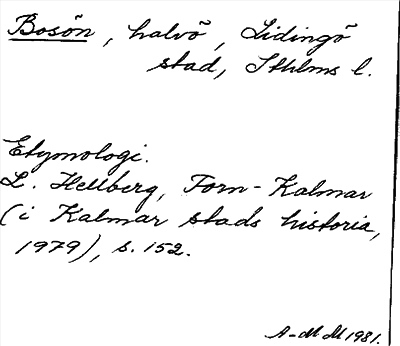 Bosön, halvö, Lidingö
stad, Sthlms l.
Etymologi.
L. Hellberg, Forn-Kalmar
(i Kalmar stads historia,
1979), s. 152.
A-M M 1981.